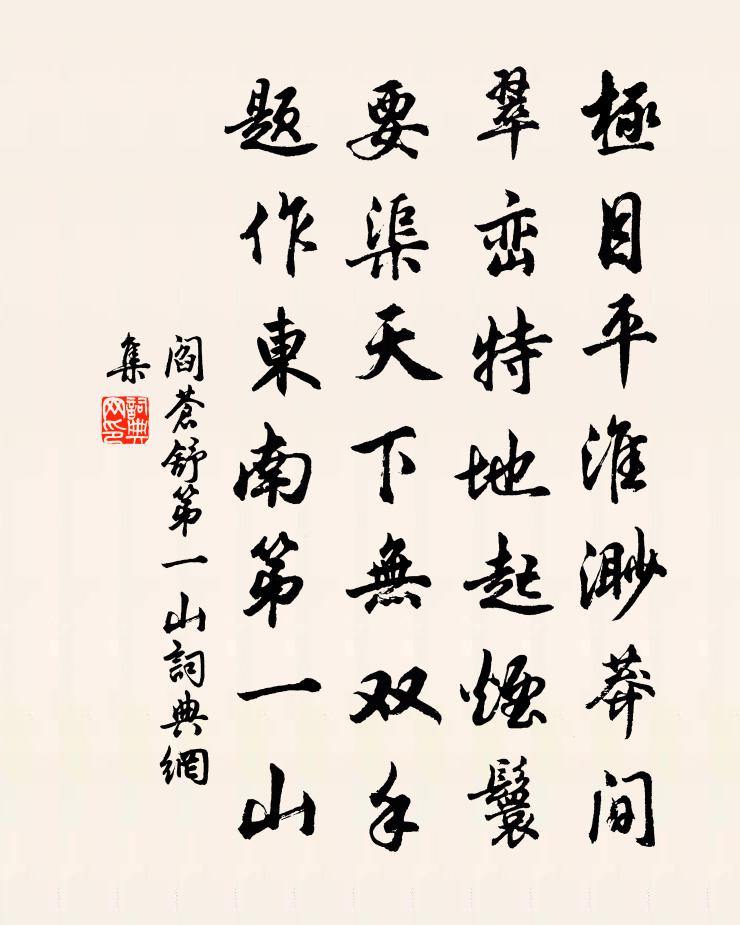 極目平淮渺莽间
翠峦特地起煙鬟
要渠天下無双手
題作東南第一山
阎蒼舒第一山詞典網
集
詞典网印